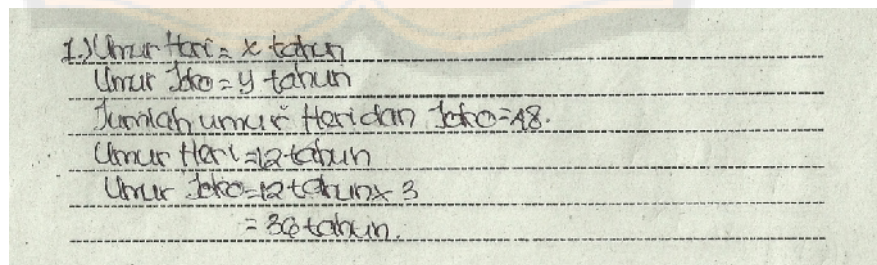 1.) Umur Heri = x tahun
Umur Joko = y tahun
Jumlah umur Heri dan Joko = 48.
Umur Heri = 12 tahun
Umur Joko = 12 tahun x 3
= 36 tahun.